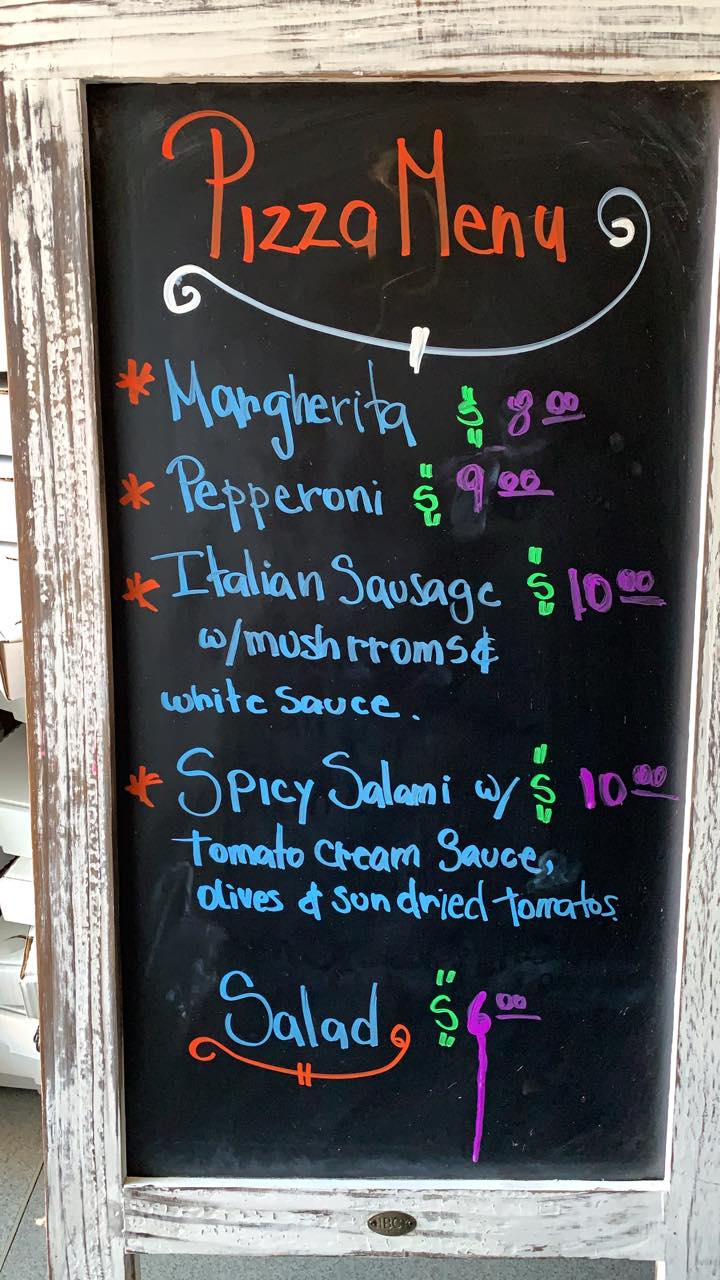 Pizza Menu
* Margherita $ 8 00
* Pepperoni $ 9 00
* Italian Sausage $ 10 00
w/mushrroms &
white sauce.
* Spicy Salami w/ $ 10 00
tomato cream Sauce,
olives & sun dried tomatos.
Salad $ 6 00
IBC